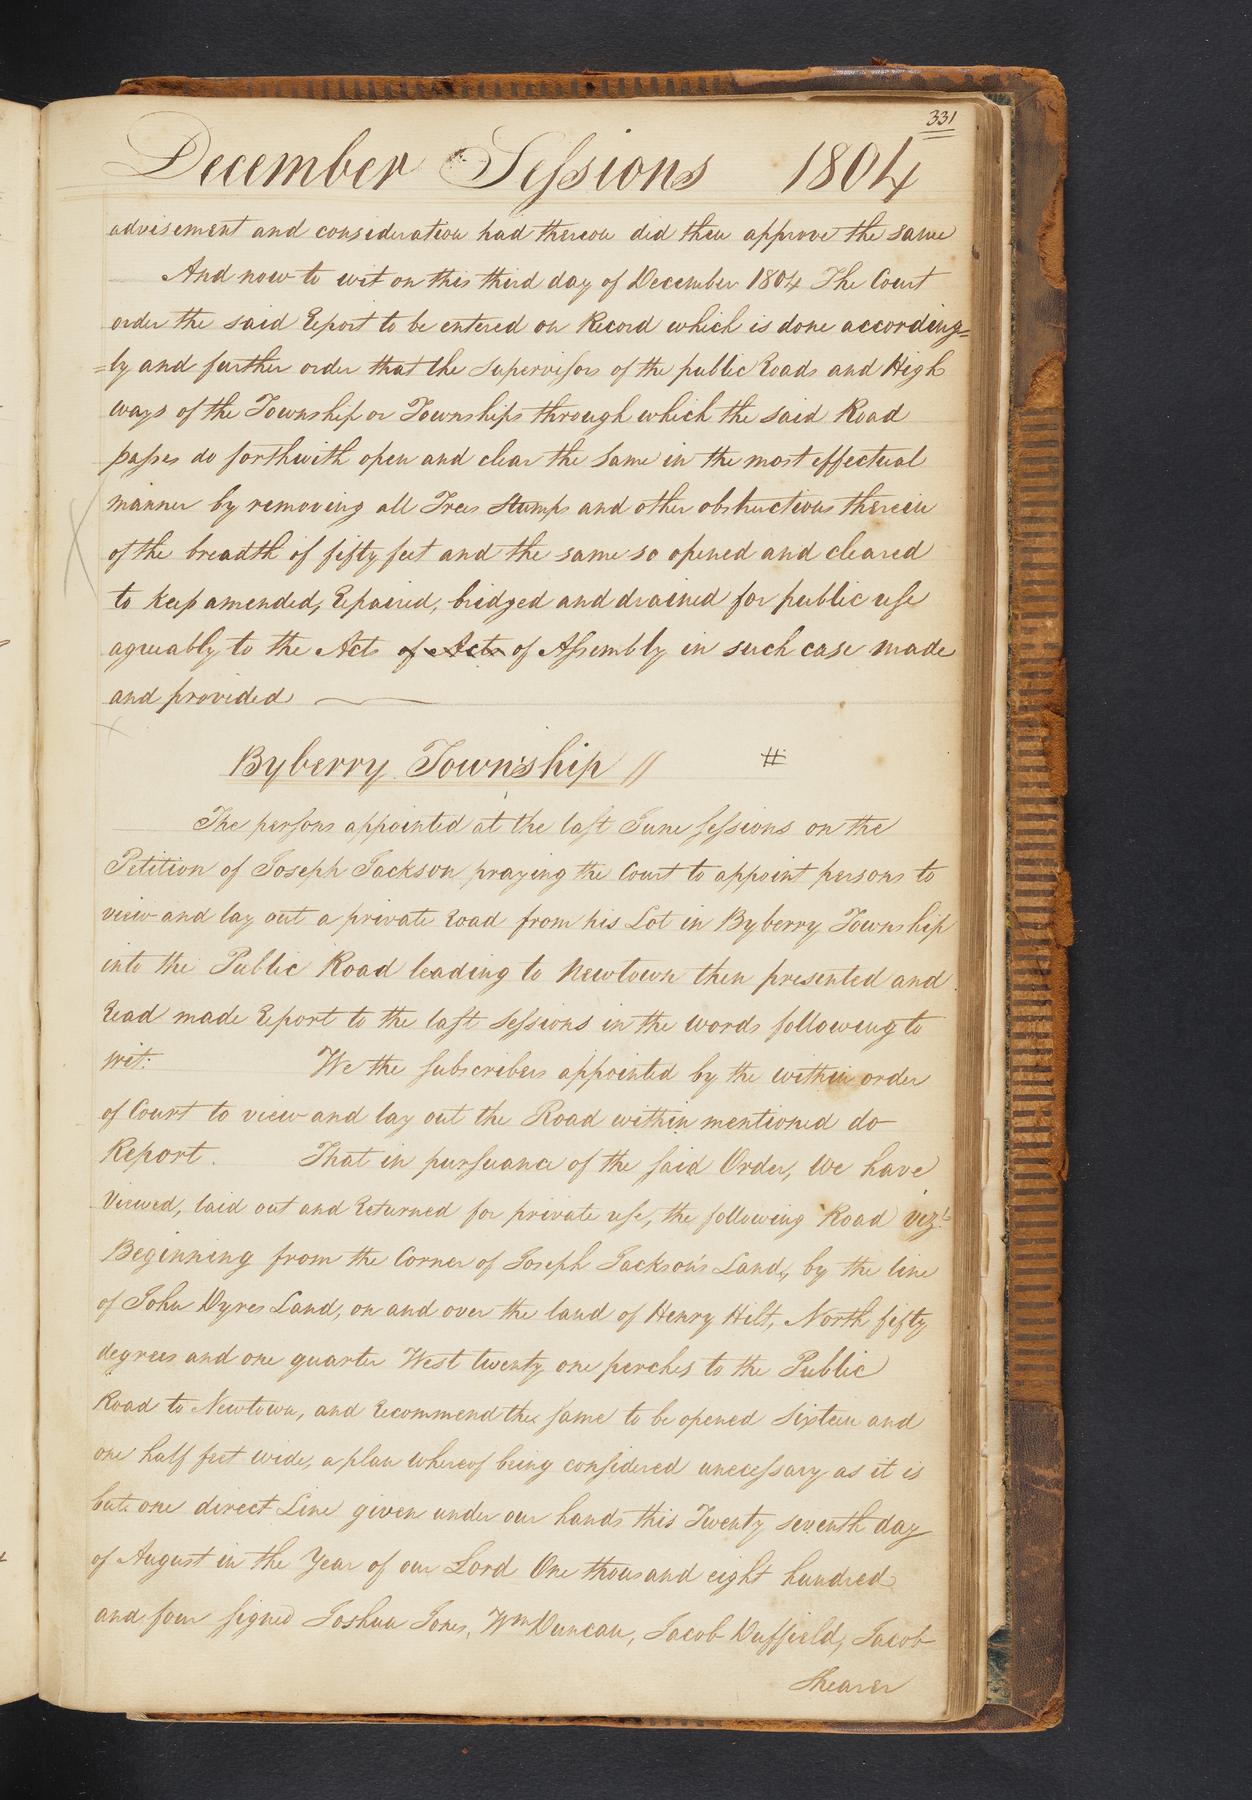 331
December Sessions 1804
advisement and consideration had thereon did then approve the same
And now to wit on this third day of December 1804 The Court
order the said Report to be entered on Record which is done according=
=ly and further order that the Supervisors of the public Roads and High
ways of the Township or Townships through which the said Road
passes do forthwith open and clear the same in the most effectual
manner by removing all Trees Stumps and other obstructions therein
of the breadth of fifty feet and the same so opened and cleared
to keep amended, Repaired, bridged and drained for public use
agreeably to the Acts of Acts of Assembly in such case made
and provided
Byberry Township // #
The persons appointed at the last June sessions on the
Petition of Joseph Jackson praying the Court to appoint persons to
view and lay out a private Road from his Lot in Byberry Township
into the Public Road leading to Newtown then presented and
Read made Report to the last sessions in the words following to
wit: We the subscribers appointed by the within order
of Court to view and lay out the Road within mentioned do
Report. That in pursuance of the said Order, We have
Viewed, laid out and Returned for private use, the following Road vizt
Beginning from the Corner of Joseph Jackson's Land, by the line
of John Dyres Land, on and over the land of Henry Hilt, North fifty
degrees and one quarter West twenty one perches to the Public
Road to Newtown, and Recommend the same to be opened Sixteen and
one half feet wide, a plan whereof being considered unecessary as it is
but one direct Line given under our hands this Twenty seventh day
of August in the Year of our Lord One thousand eight hundred
and four signed Joshua Jones, Wm Duncan, Jacob Duffield, Jacob
Shearer